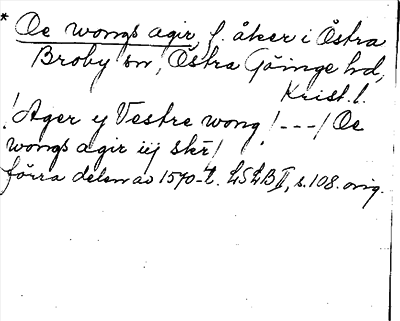 * Oe wongs agir f. åker i Östra
Broby sn, Östra Göinge hd,
Krist. l.
! Ager y Vestre wong ! --- / Oe
wongs agir iij skr̄ /
förra delen av 1570-t. LSLB II, s. 108. orig.